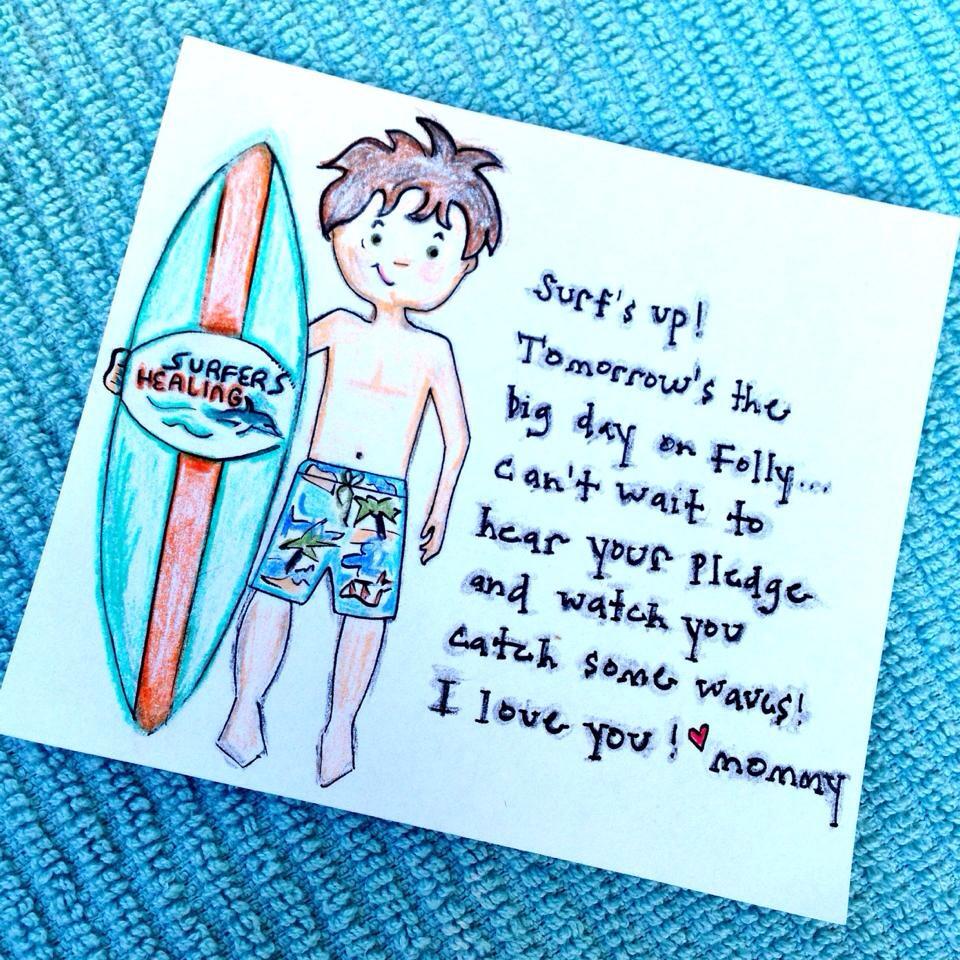 SURFERS
HEALING
Surf's up!
Tomorrow's the
big day on Folly...
can't wait to
hear your pledge
and watch you
catch some waves!
I love you! ♥ mommy